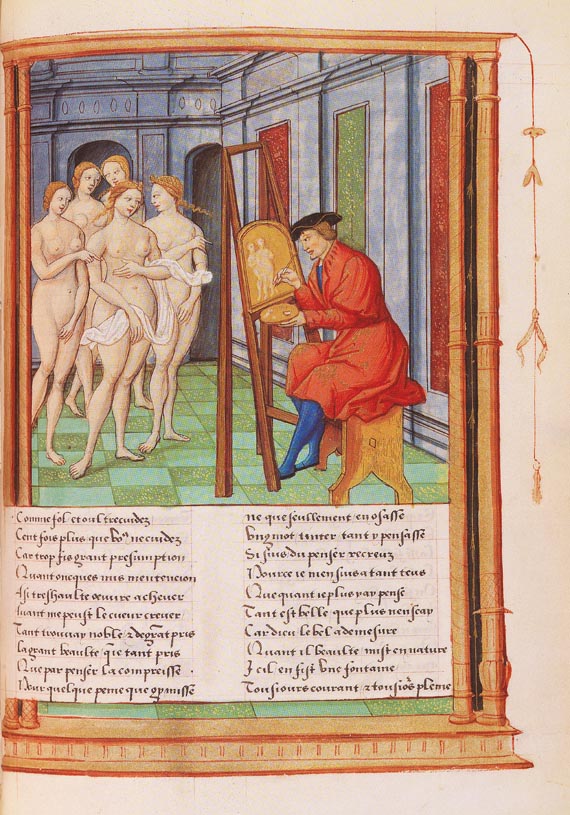 Comme fol et oultrecuidez
Cent fois plus que vo9 ne cuidez
Car trop fis grant presumption
Quant oncques mis mentencion
A si treshaulte oeuure acheuer
Auant me peust le cueur creuer
Tant trouuay noble & de grãt pris
La grant beaulte que tant pris
Que par penser la compreisse
Pour quelque peine que gy meisse
ne que seullement en osasse
Ung mot tinter tant y pensasse
Si suis du penser recreuz
Pource ie men suis atant teus
Que quant ie plus y ay pense
Tant est belle que plus nen scay
Car dieu le bel a demesure
Quant il beaulte mist en nature
Il en fist vne fontaine
Tousiours courant & tousio's pleine